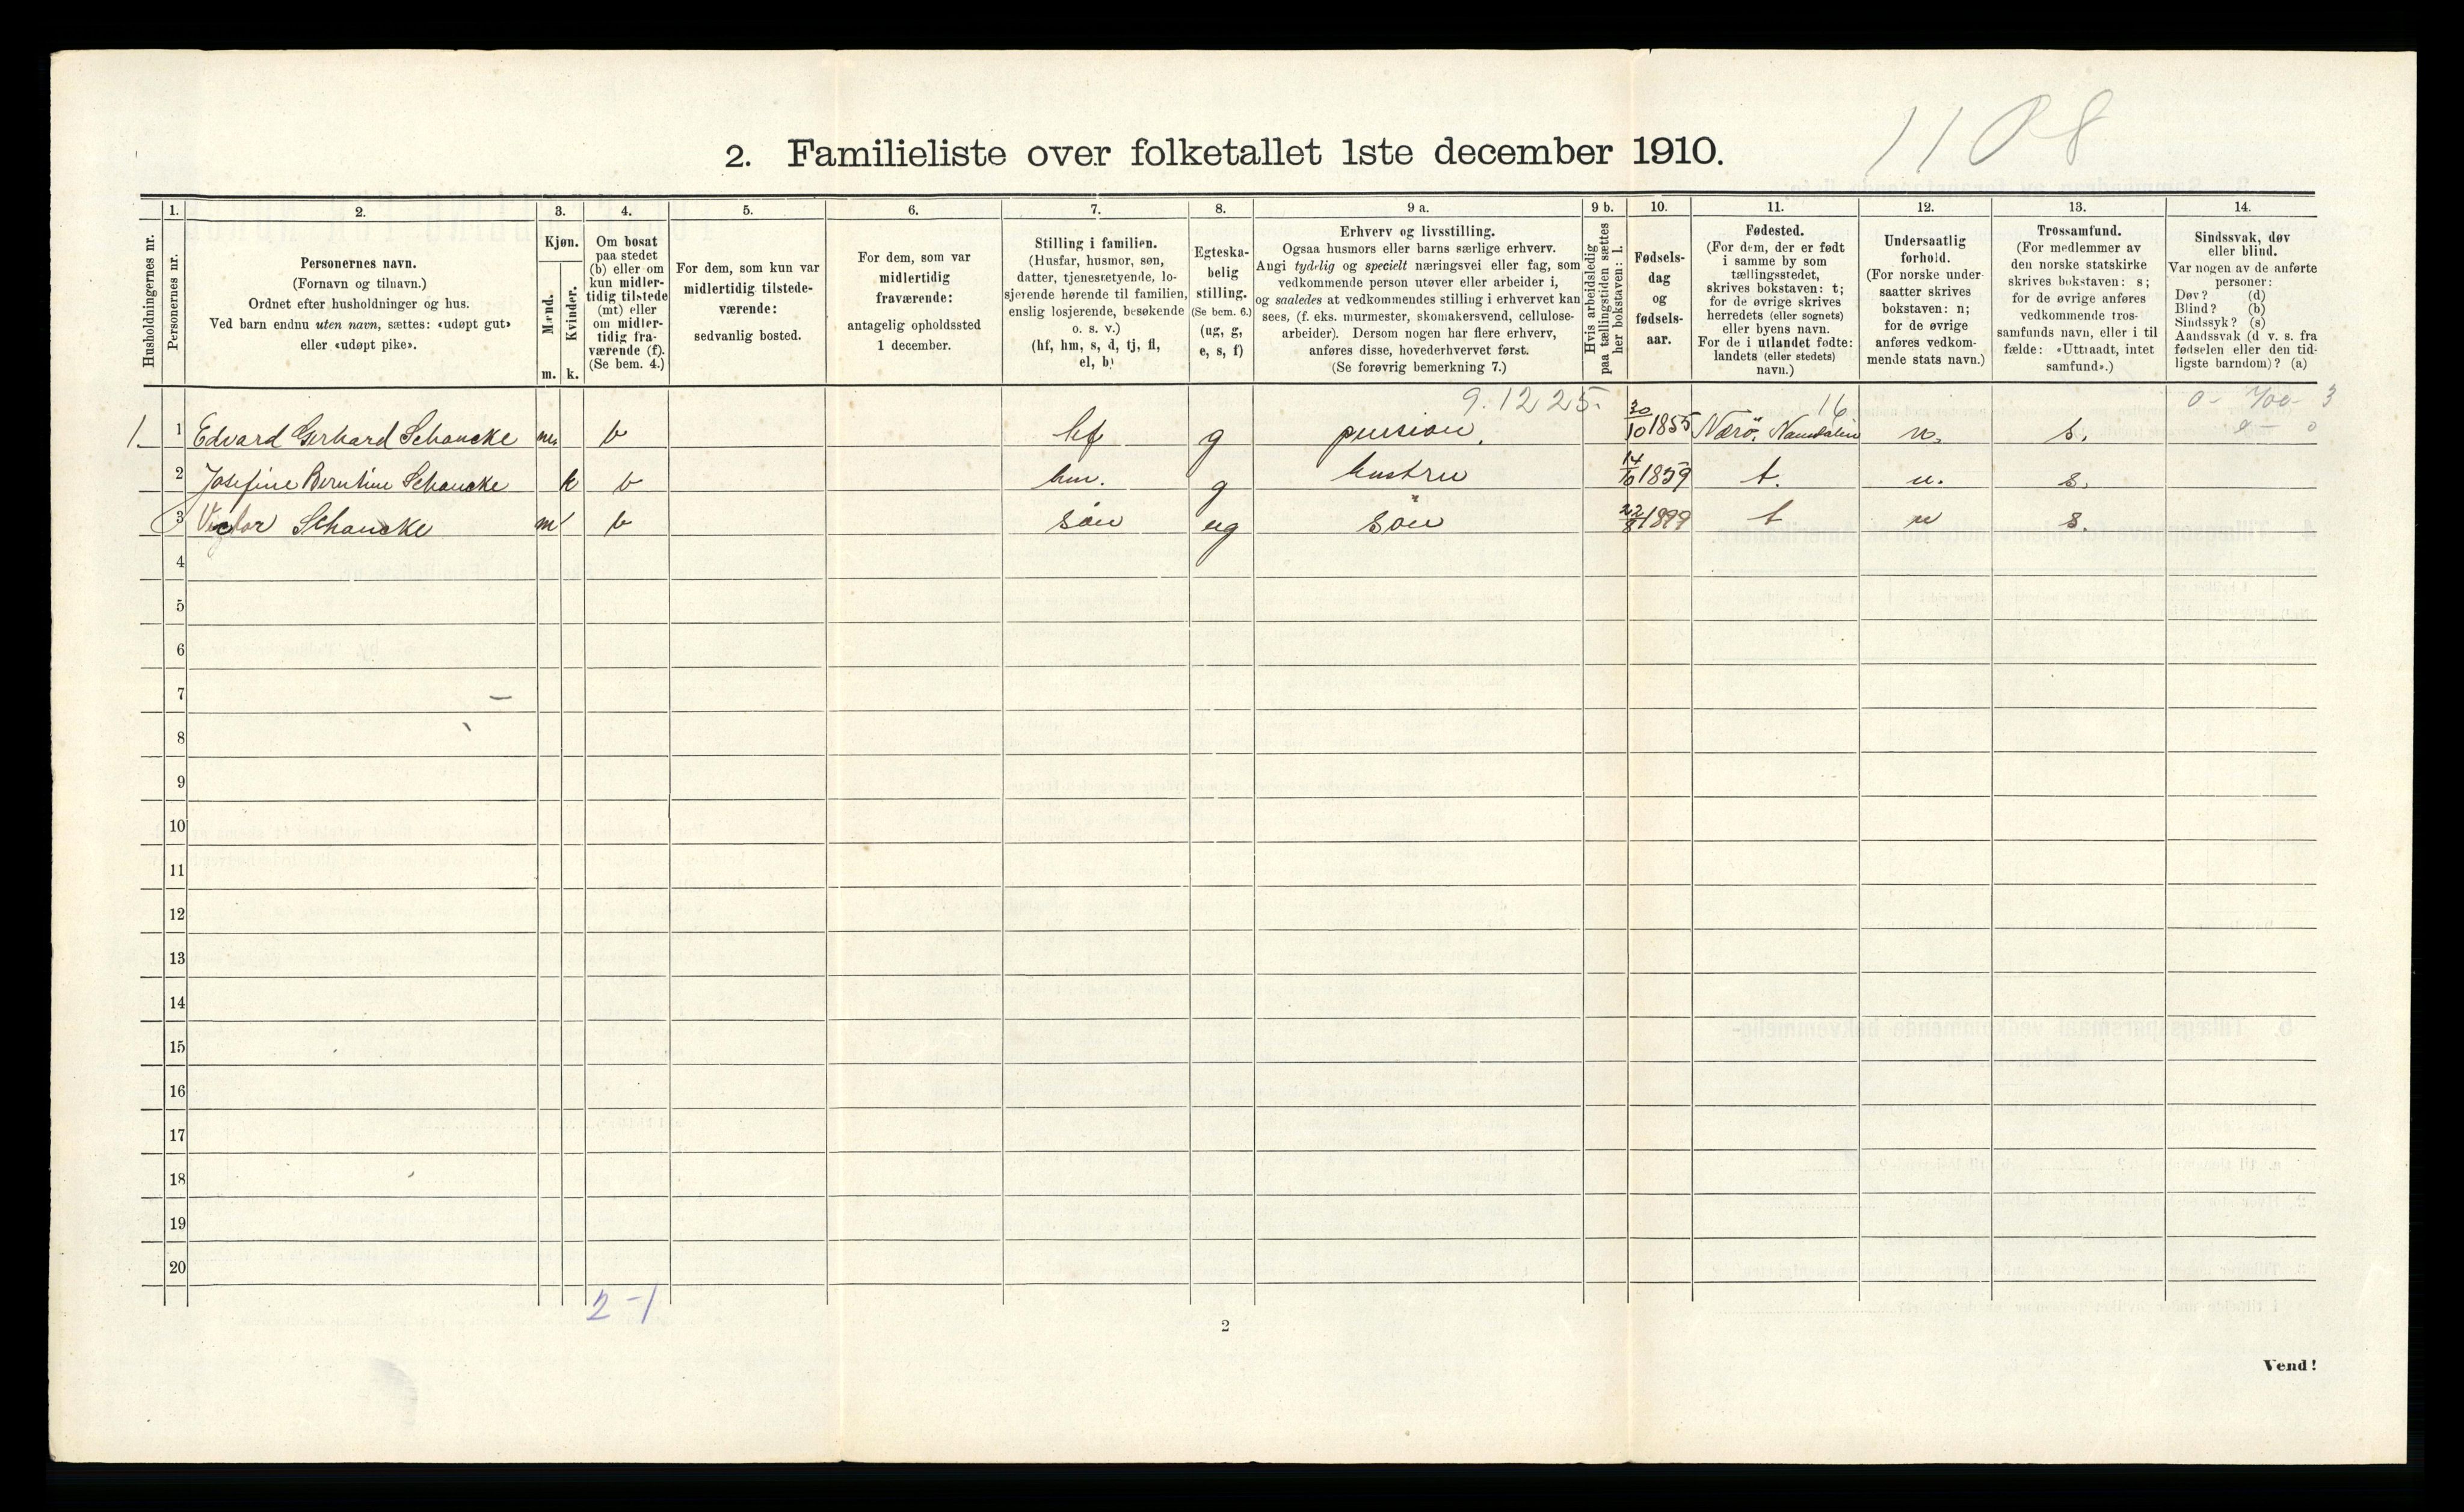 1108
2. Familieliste over folketallet 1ste december 1910.
Husholdningernes nr.
1.
Personernes nr.
2.
Personernes navn.
(Fornavn og tilnavn.)
Ordnet efter husholdninger og hus.
Ved barn endnu uten navn, sættes: «udøpt gut»
eller «udøpt pike».
3.
Kjøn.
Mænd.
m.
Kvinder.
k.
4.
Om bosat
paa stedet
(b) eller om
kun midler-
tidig tilstede
(mt) eller
om midler-
tidig fra-
værende (f).
(Se bem. 4.)
5.
For dem, som kun var
midlertidig tilstede-
værende:
sedvanlig bosted.
6.
For dem, som var
midlertidig
fraværende:
antagelig opholdssted
1 december.
7.
Stilling i familien.
(Husfar, husmor, søn,
datter, tjenestetyende, lo-
sjerende hørende til familien,
enslig losjerende, besøkende
o. s. v.)
(hf, hm, s, d, tj, fl,
el, b)
8.
Egteska-
belig
stilling.
(Se bem. 6.)
(ug, g,
e, s, f)
9 a.
Erhverv og livsstilling.
Ogsaa husmors eller barns særlige erhverv.
Angi tydelig og specielt næringsvei eller fag, som
vedkommende person utøver eller arbeider i,
og saaledes at vedkommendes stilling i erhvervet kan
sees, (f. eks. murmester, skomakersvend, cellulose-
arbeider). Dersom nogen har flere erhverv,
anføres disse, hovederhvervet først.
(Se forøvrig bemerkning 7.)
9 b.
Hvis arbeidsledig
paa tællingstiden sættes
her bokstaven: l.
10.
Fødsels-
dag
og
fødsels-
aar.
11.
Fødested.
(For dem, der er født
i samme by som
tællingsstedet,
skrives bokstaven: t;
for de øvrige skrives
herredets (eller sognets)
eller byens navn.
For de i utlandet fødte:
landets (eller stedets)
navn.)
12.
Undersaatlig
forhold.
(For norske under-
saatter skrives
bokstaven: n;
for de øvrige
anføres vedkom-
mende stats navn.)
13.
Trossamfund.
(For medlemmer av
den norske statskirke
skrives bokstaven: s;
for de øvrige anføres
vedkommende tros-
samfunds navn, eller i til
fælde: «Uttraadt, intet
samfund».)
14.
Sindssvak, døv
eller blind.
Var nogen av de anførte
personer:
Døv? (d)
Blind? (b)
Sindssyk? (s)
Aandssvak (d v. s. fra
fødselen eller den tid-
ligste barndom)? (a)
9.1225. 16 0- 700- 3
1. 1 Edvard Gerhard Schancke m. b hf g pension. 30/10 1855 Nærö, Namdalen n. s.
2 Josefine Berntine Schancke k b hm. g hustru 14/10 1859 t. n. s.
3 Victor Schancke m b søn ug søn 22/8 1899 t n s.
4
5
6
7
8
9
10
11
12
13
14
15
16
17
18
19
20
2-1
2
Vend!